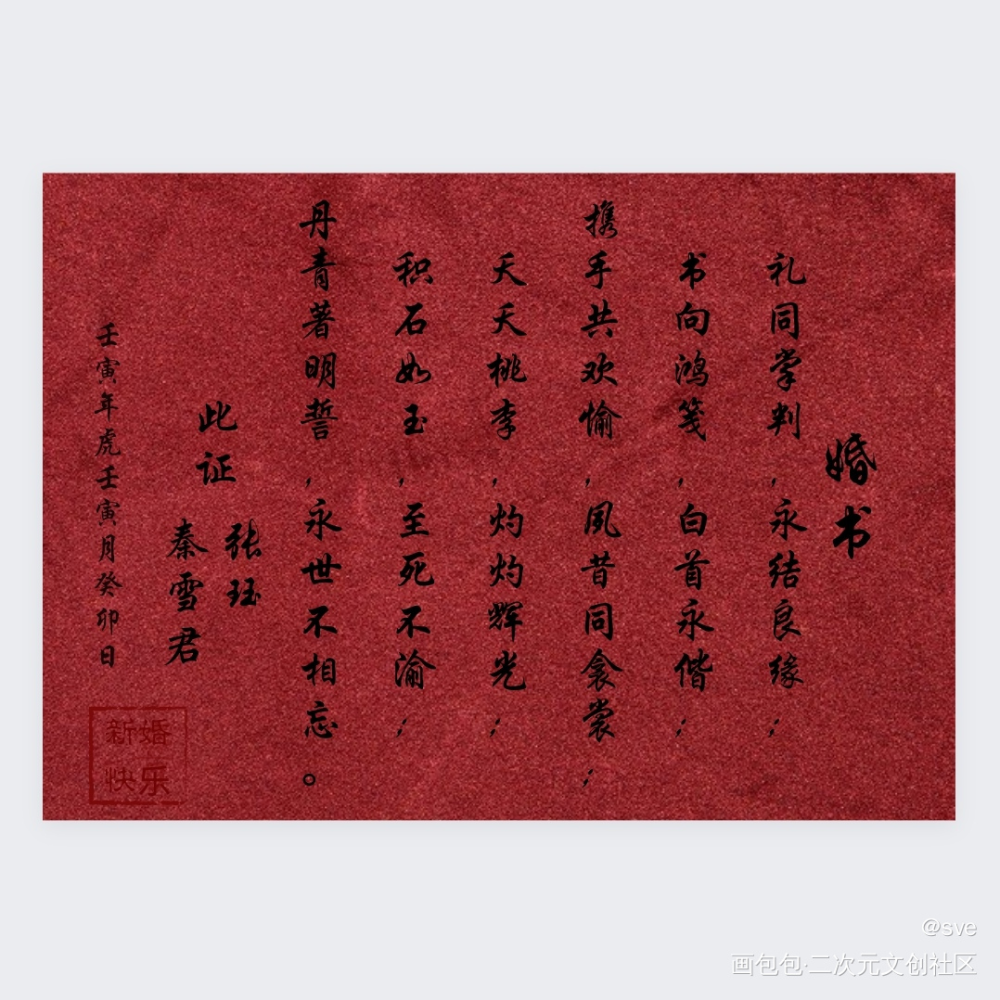 婚书
礼同掌判，永结良缘；
书向鸿笺，白首永偕；
携手共欢愉，夙昔同衾裳；
天天桃李，灼灼辉光；
积石如玉，至死不渝；
丹青著明誓，永世不相忘。
此证
张珏
秦雪君
壬寅年虎壬寅月癸卯日
新婚
快乐
@sve
画包包·二次元文创社区